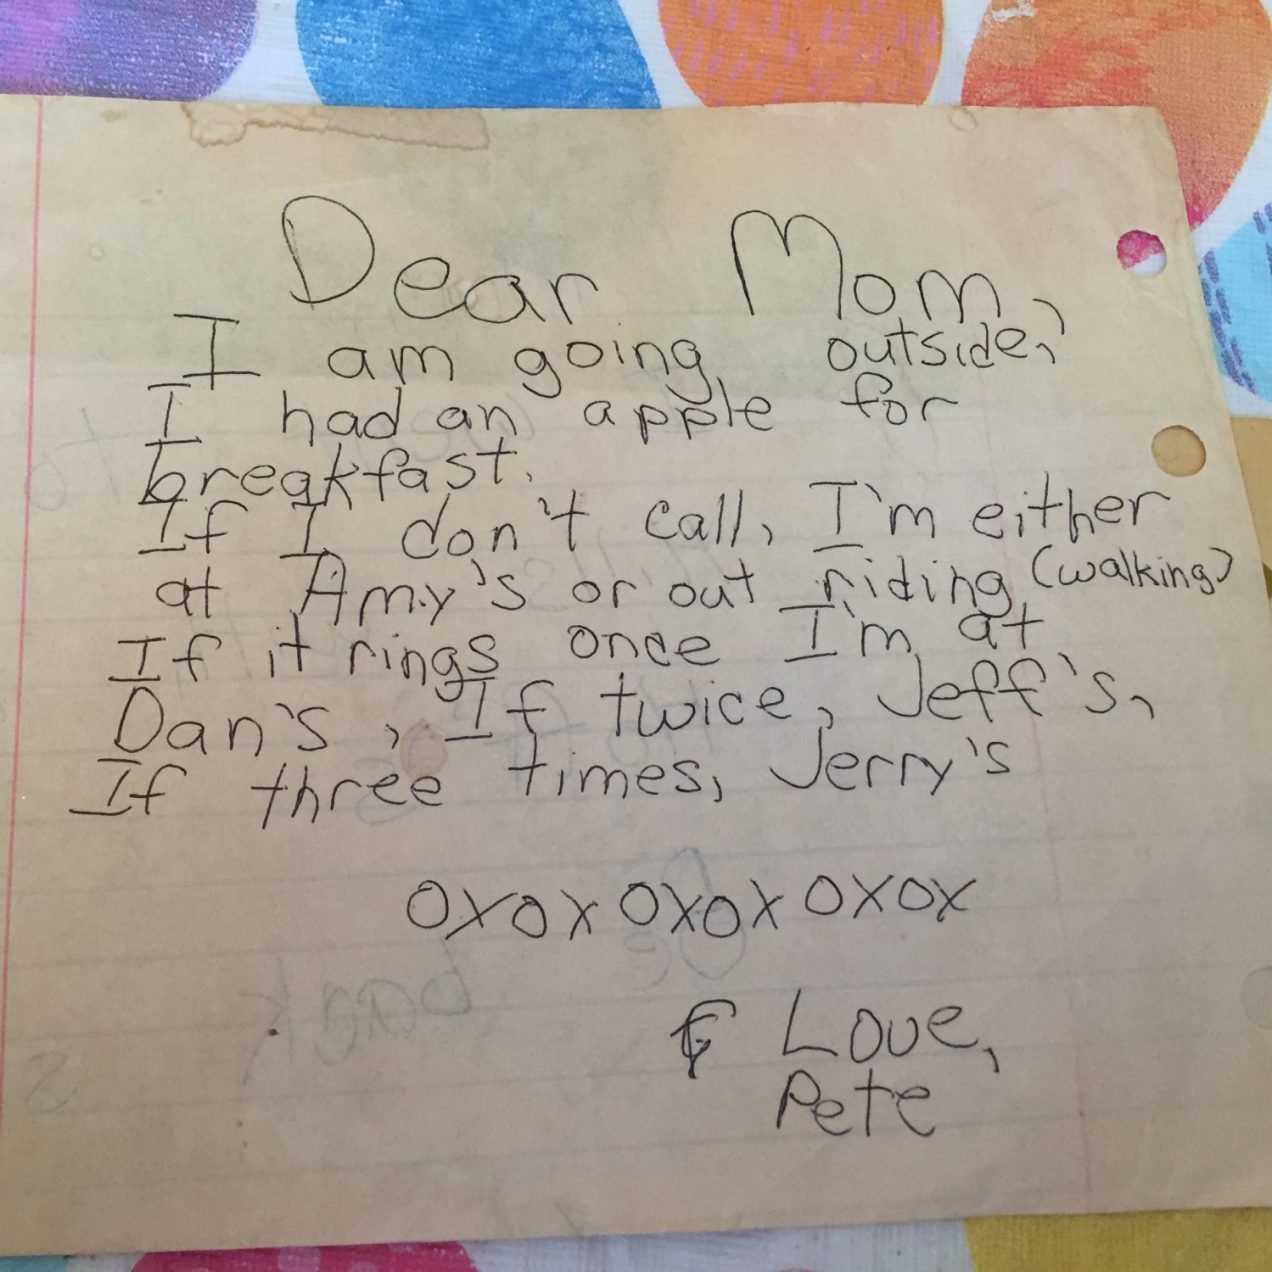 Dear Mom,
I am going outside,
I had an apple for
breakfast.
If I don't call, I'm either
at Amy's or out riding (walking)
If it rings once I'm at
Dan's, If twice, Jeff's,
If three times, Jerry's
OXOX OXOX OXOX
Love,
Pete